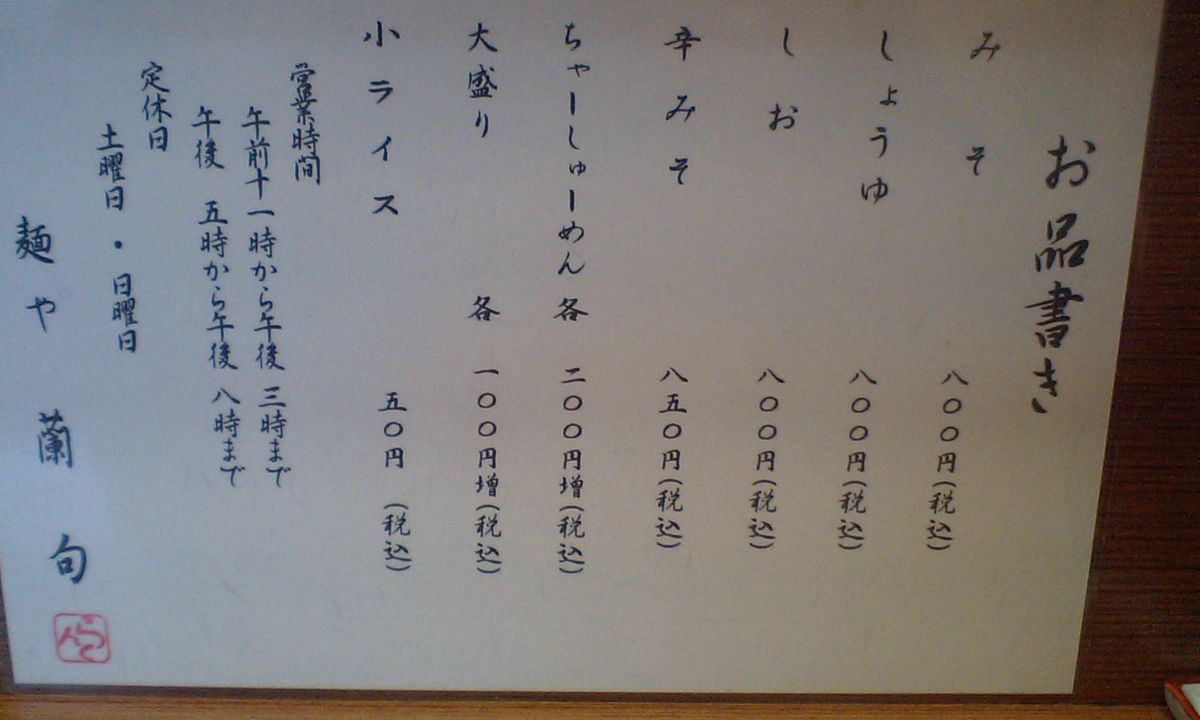 お品書き
みそ 八〇〇円(税込)
しょうゆ 八〇〇円(税込)
しお 八〇〇円(税込)
辛みそ 八五〇円(税込)
ちゃーしゅーめん 各 二〇〇円増(税込)
大盛り 各 一〇〇円増(税込)
小ライス 五〇円 (税込)
営業時間
午前十一時から午後 三時まで
午後 五時から午後 八時まで
定休日
土曜日・日曜日
麺や 蘭句